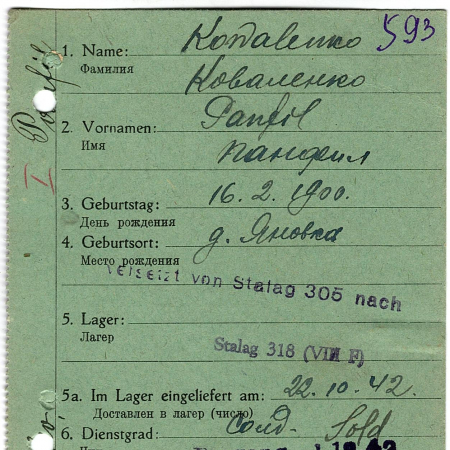 593
1. Name: Kowalenko
Фамилия Коваленко
2. Vornamen: Panfil
Имя Панфил
3. Geburtstag: 16.2.1900.
День рождения
4. Geburtsort: д. Яновка
Место рождения
Versetzt von Stalag 305 nach
5. Lager:
Лагер
Stalag 318 (VIII F)
5a. Im Lager eingeliefert am: 22.10.42.
Доставлен в лагер (число)
6. Dienstgrad: Солд. Sold